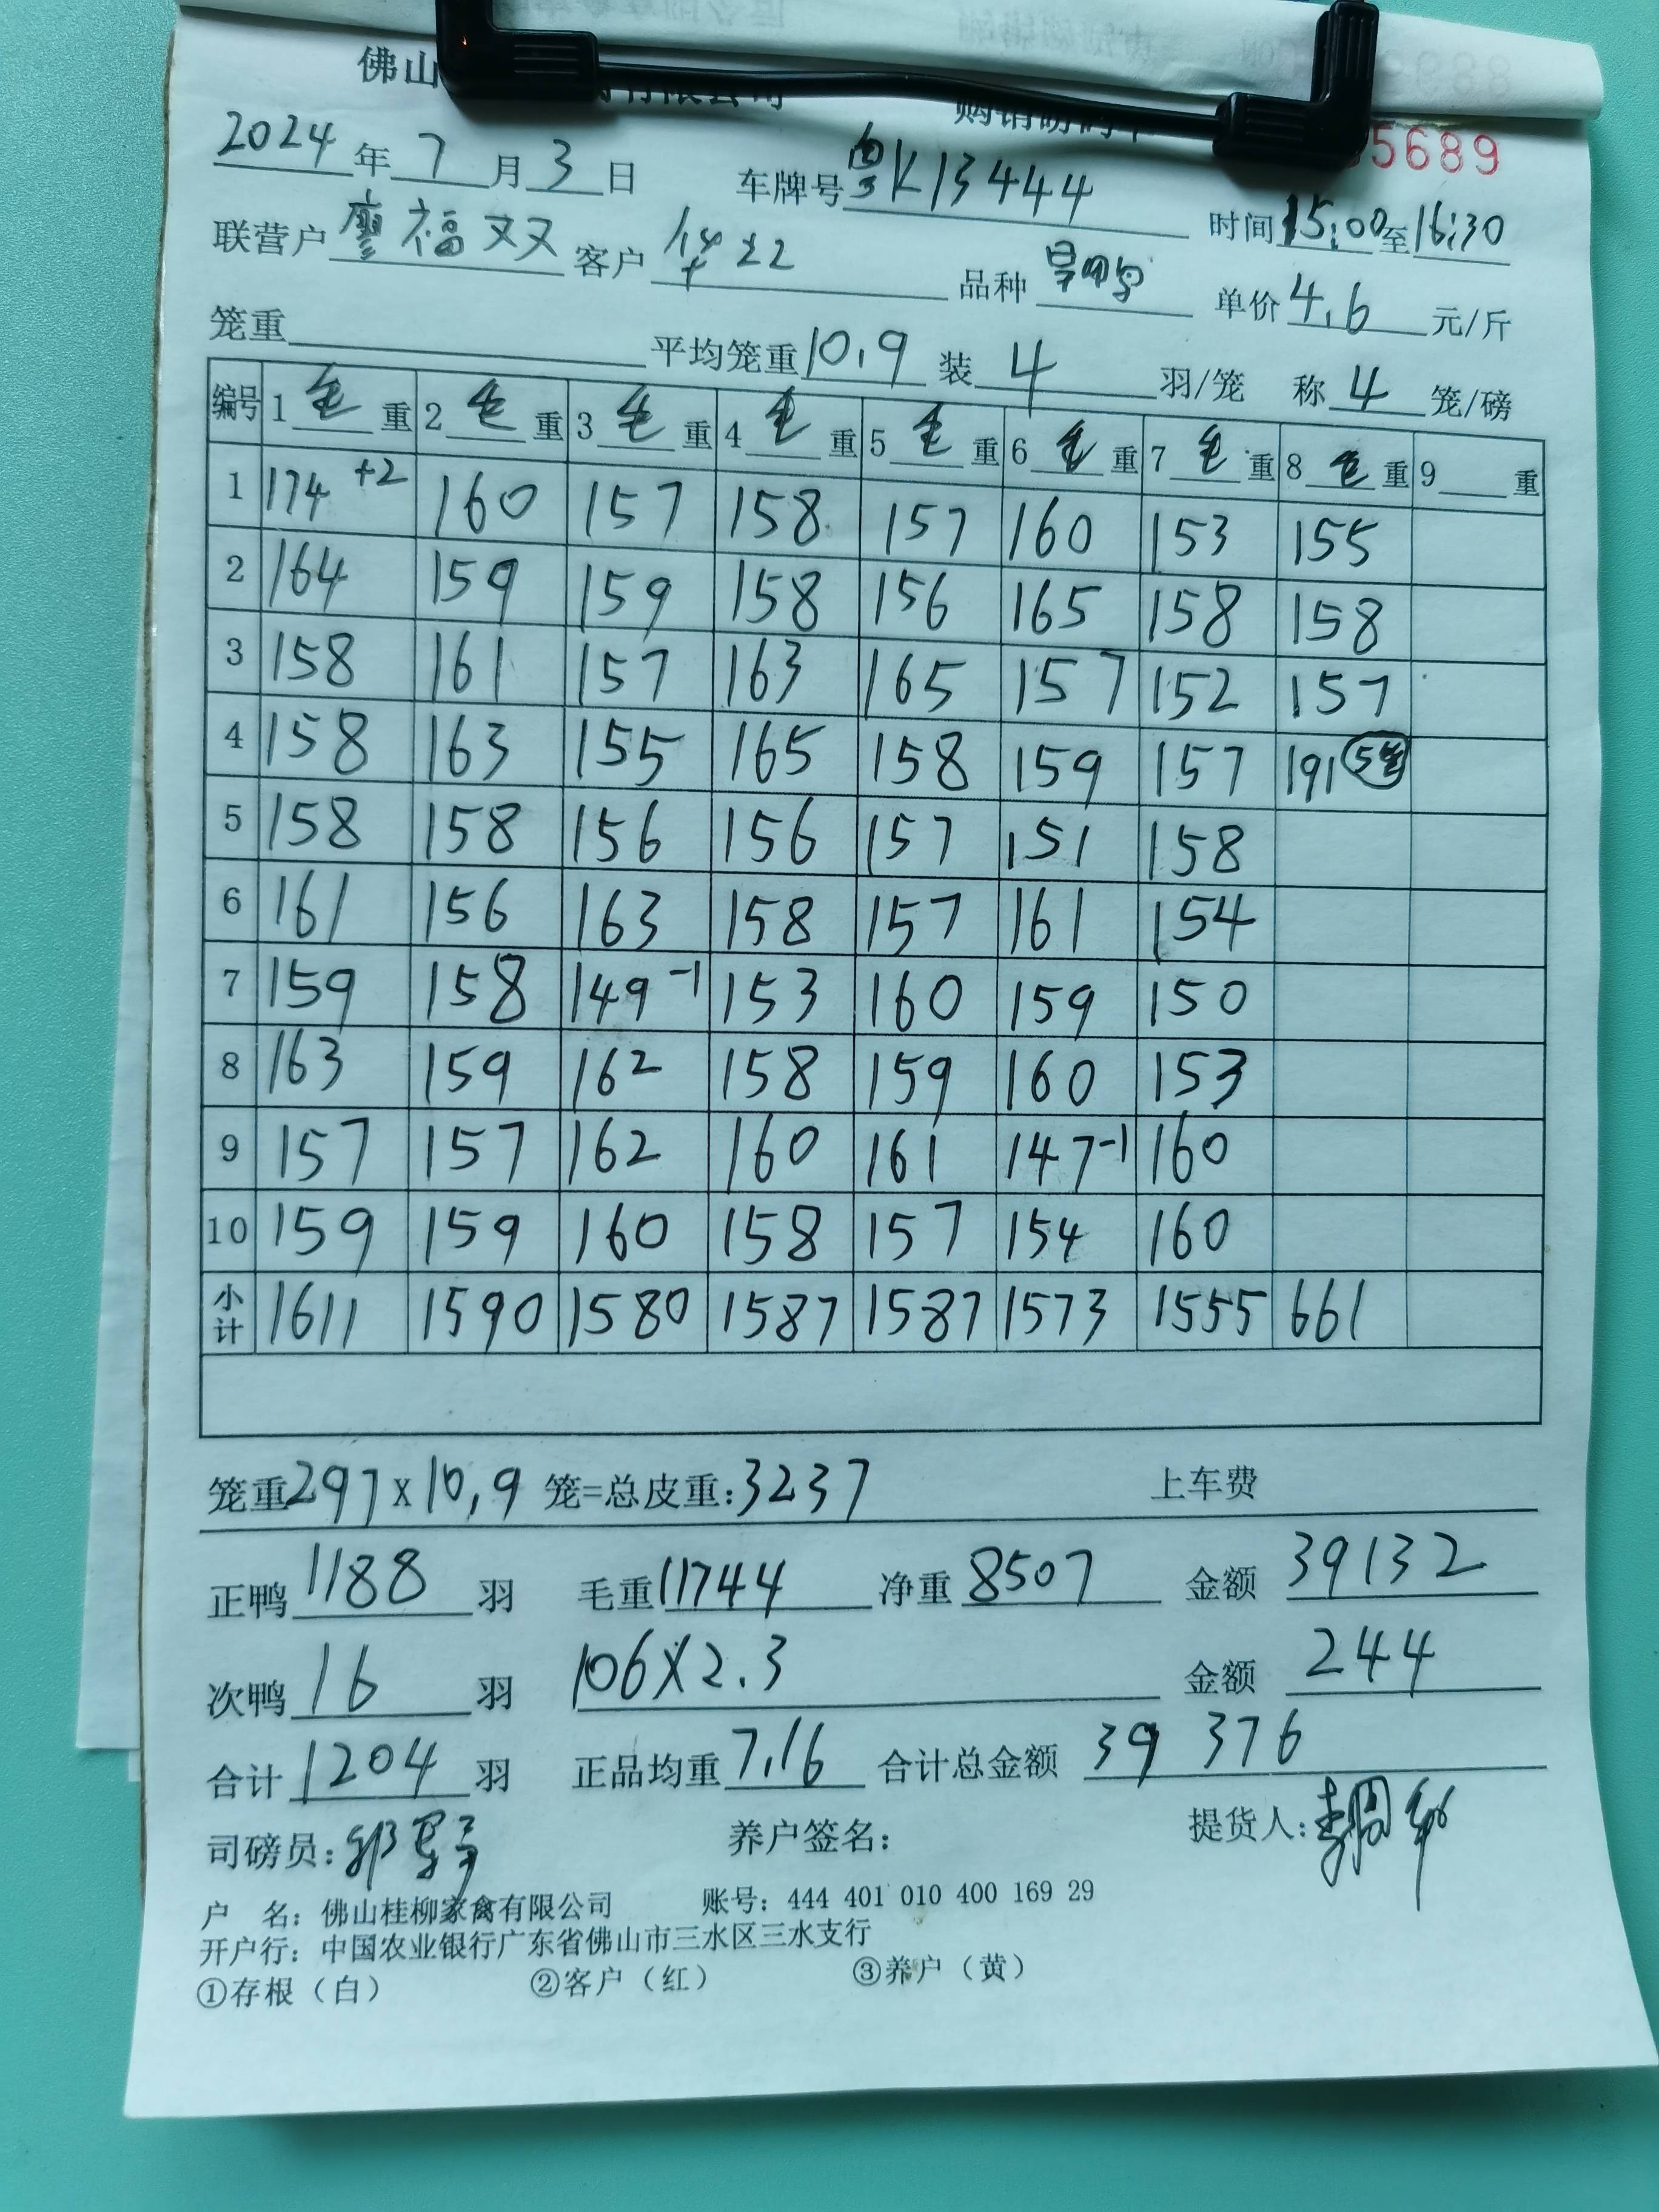 佛山 有限公司 购销磅码单 5689
2024年7月3日 车牌号粤K13444 时间15:00至16:30
联营户廖福双 客户 品种 单价4.6元/斤
笼重 平均笼重10.9 装4羽/笼 称4笼/磅
编号 1毛重 2毛重 3毛重 4毛重 5毛重 6毛重 7毛重 8毛重 9重
1 174+2 160 157 158 157 160 153 155
2 164 159 159 158 156 165 158 158
3 158 161 157 163 165 157 152 157
4 158 163 155 165 158 159 157 191 5笼
5 158 158 156 156 157 151 158
6 161 156 163 158 157 161 154
7 159 158 149-1 153 160 159 150
8 163 159 162 158 159 160 153
9 157 157 162 160 161 147-1 160
10 159 159 160 158 157 154 160
小计 1611 1590 1580 1587 1587 1573 1555 661
笼重297x10.9笼=总皮重:3237 上车费
正鸭1188羽 毛重11744 净重8507 金额39132
次鸭16羽 106X2.3 金额244
合计1204羽 正品均重7.16 合计总金额39376
司磅员: 养户签名: 提货人:
户 名:佛山桂柳家禽有限公司 账号:444 401 010 400 169 29
开户行:中国农业银行广东省佛山市三水区三水支行
①存根(白) ②客户(红) ③养户(黄)